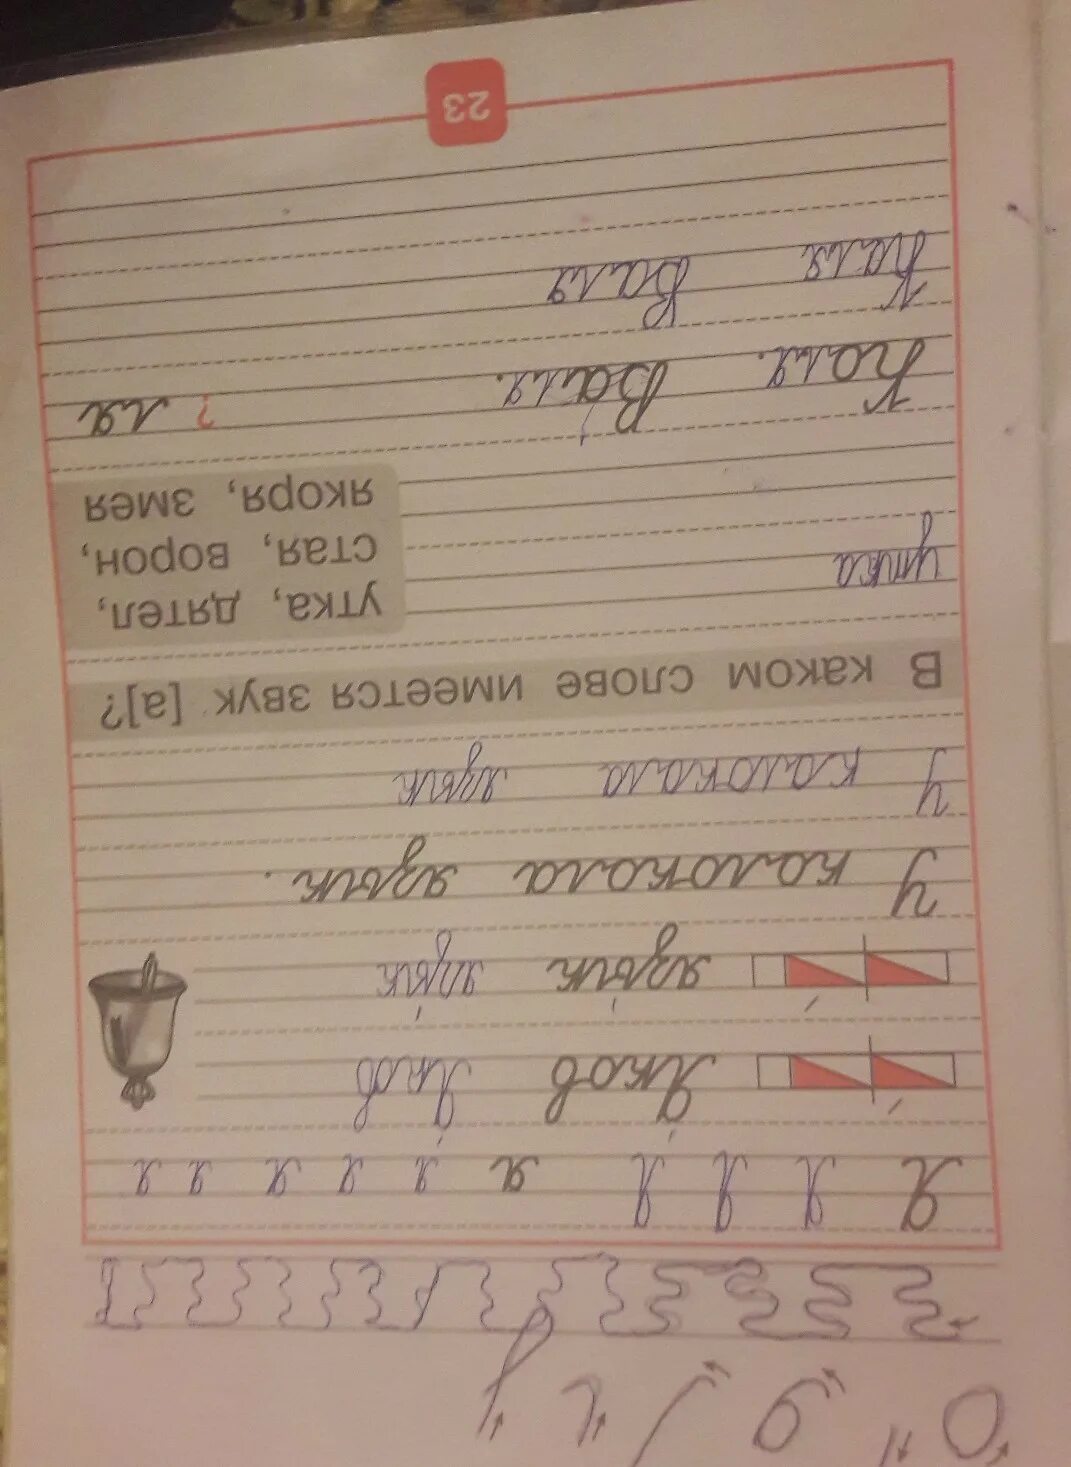 Я Я Я Я я я я я я я
Яков Яков
язык язык
У колокола язык.
У колокола язык
В каком слове имеется звук [а]?
утка, дятел,
стая, ворон,
якоря, змея
утка
Коля. Валя. ? ля
Коля Валя
23